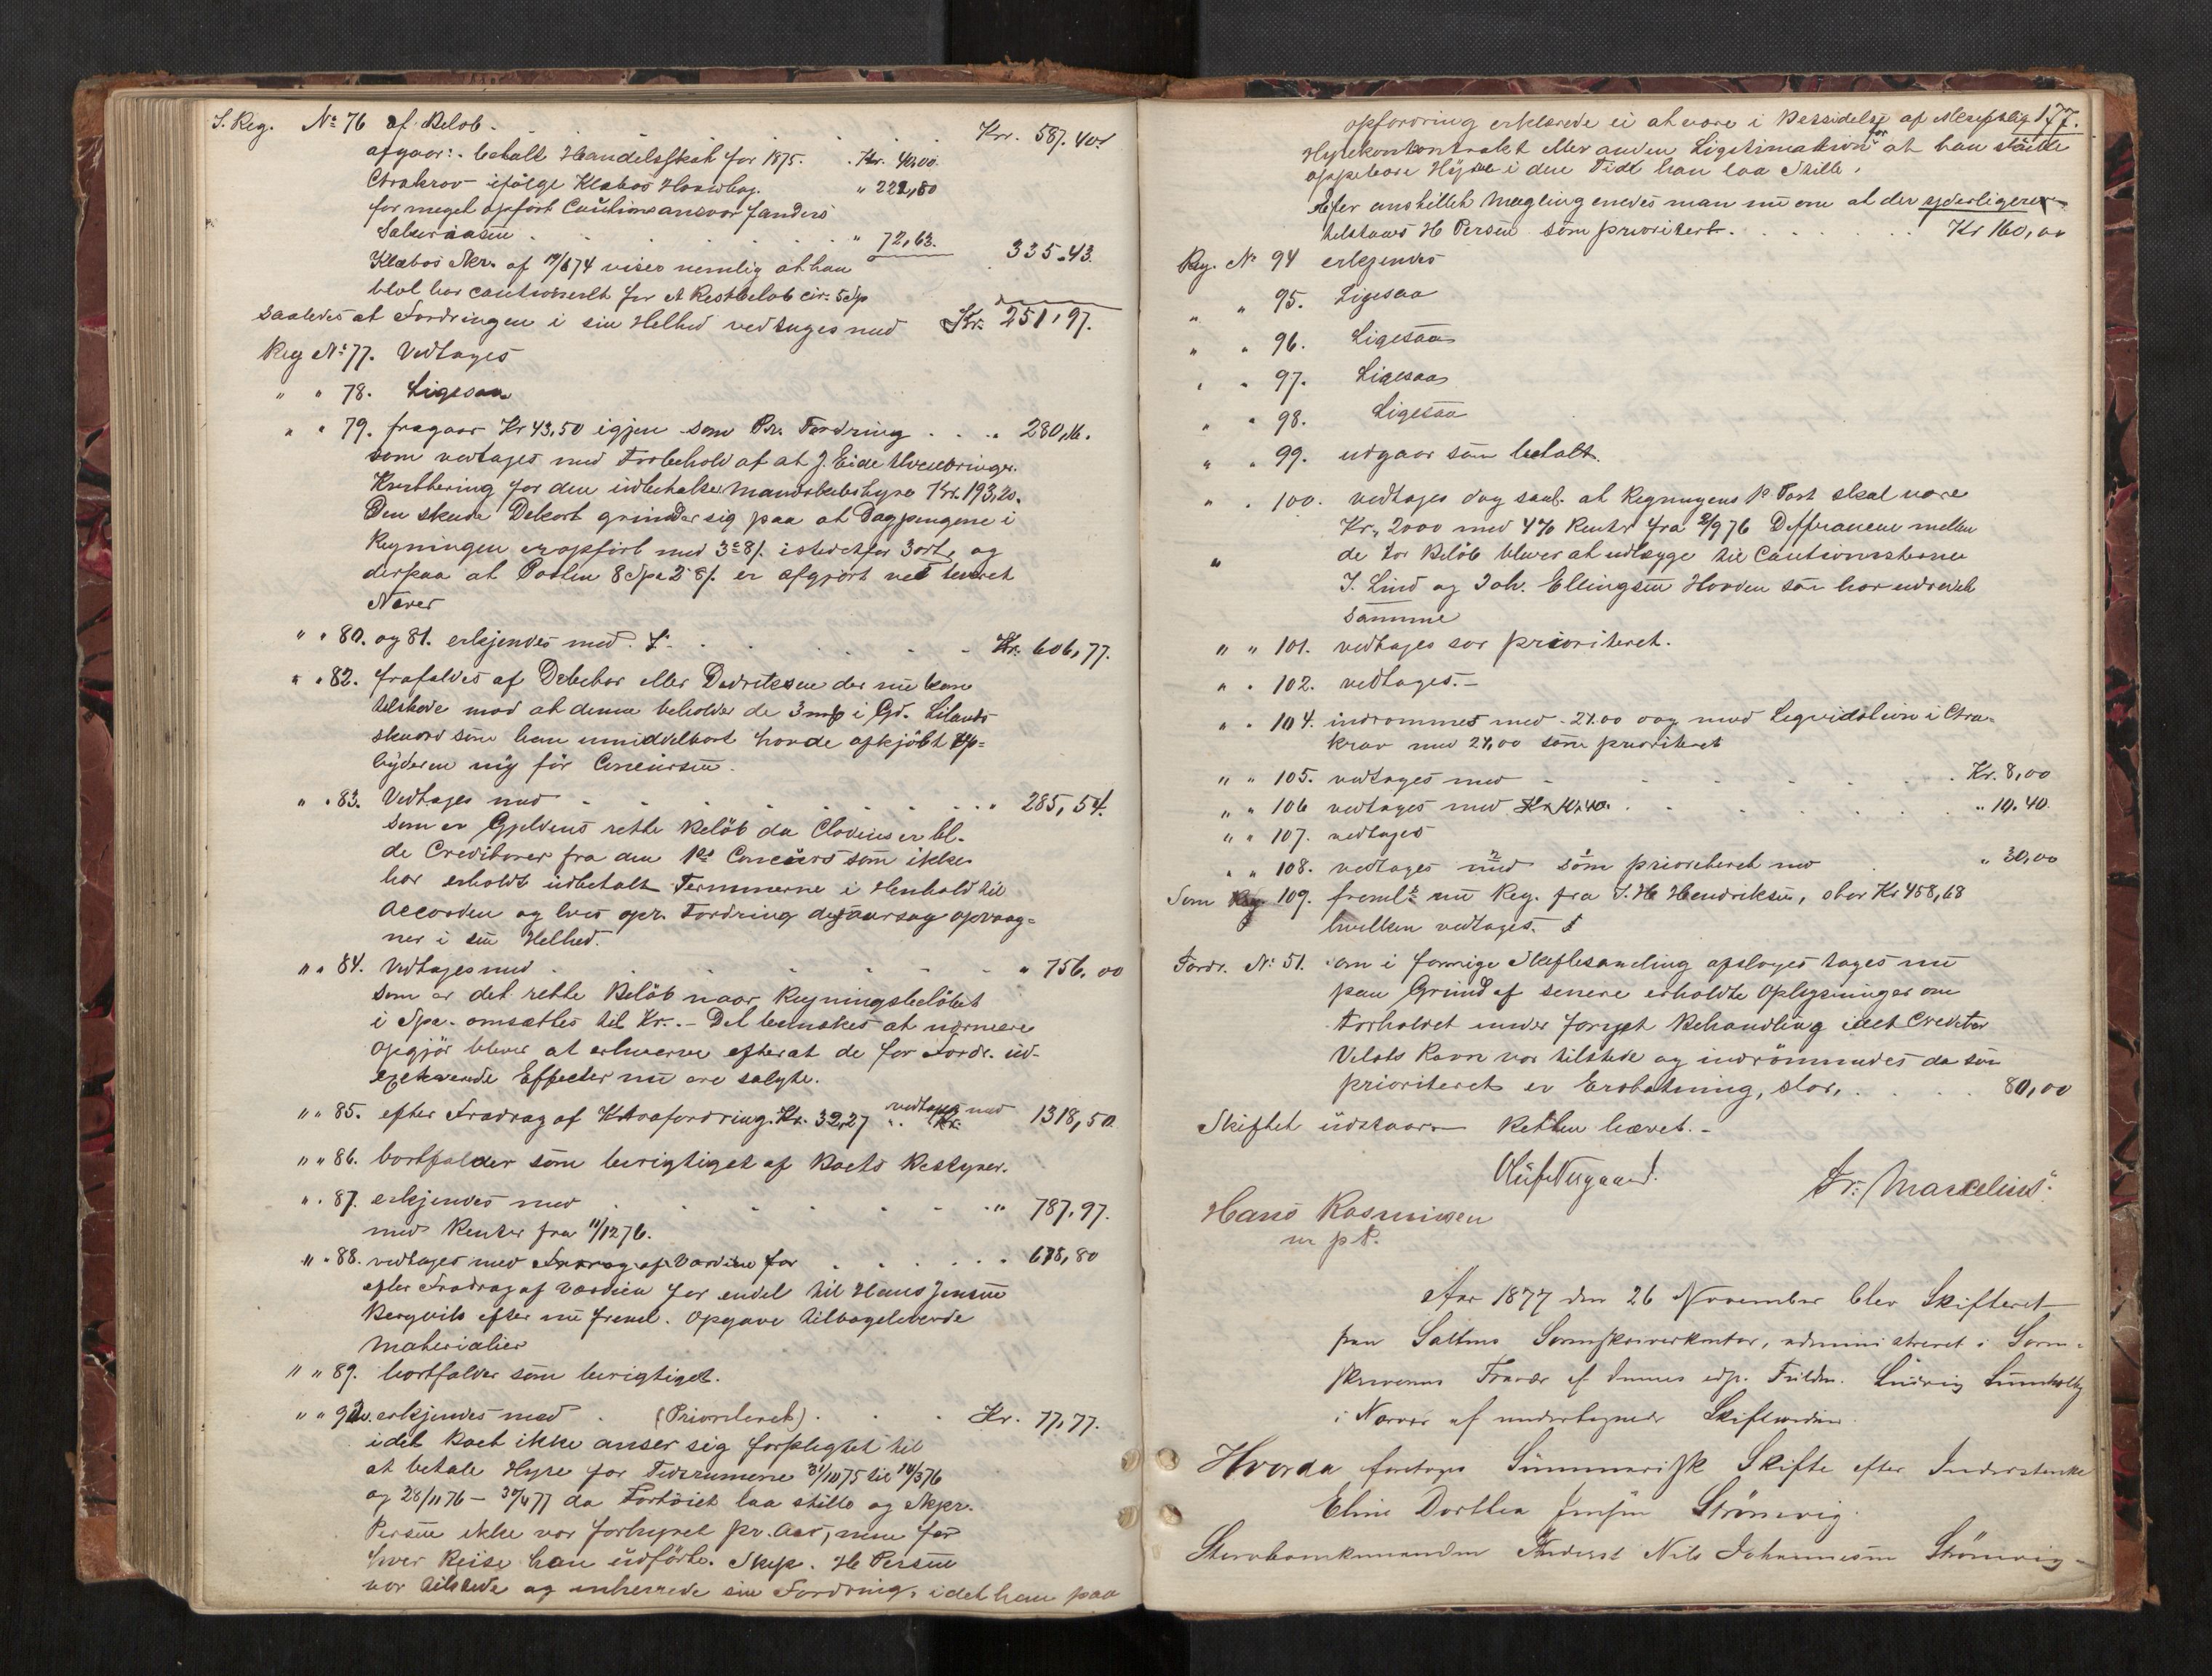 S. Reg. No 76 af Beløb. Kr. 587.40
afgaar: betalt Handelsskat for 1875. Kr. 40.00
Contrakrav ifølge Klæboes " 222,80
for meget opført Cautionsansvar
" 72,63. 335.43.
Klæboes Skr. af viser nemlig at han
blot har cautioneret for et Restbeløb cir. 5 Sp
saaledes at Fordringen i sin Helhed vedtages med Kr. 251,97.
Reg No 77. Vedtages
" " 78. Ligesaa
" " 79. fragaar Kr 43,50 igjen som Pr. Fordring " 280,16.
som vedtages med Forbehold af at J. Eide
Kvittering for den udbetalte Mandskabshyre Kr. 193,20.
Den skede Dekort grunder sig paa at Dagpengene i
Regningen er opført med istedetfor 3 ort, og
derpaa at Posten 8 Spd er afgjort ved leveret
Næver
" " 80. og 81. erkjendes med Kr. 606,77.
" " 82. frafaldes af Debitor eller Dedriksen der nu kom
tilstede mod at denne beholder de 3 i Gd. Lilands
som han umiddelbart havde afkjøbt
før Concursen.
" " 83. Vedtages med " 285,54.
som er Gjeldens rette Beløb da Clodius er bl.
de Creditorer fra den 1ste Concurs som ikke
har erholdt udbetalt Terminerne i Henhold til
Accorden og hvis opr. Fordring desaarsag opvaag-
ner i sin Helhed.
" " 84. Vedtages med " 756.00
som er det rette Beløb naar Regningsbeløbet
i Spd. omsættes til Kr. - Det bemærkes at nærmere
Opgjør bliver at erhverve efterat de for Fordr. ud-
Effecter nu ere solgte.
" " 85. efter Fradrag af Kontrafordring. Kr. 32,27 vedtages med Kr. 1318,50.
" " 86. bortfalder som berigtiget af Boets Bestyrer.
" " 87. erkjendes med " 787,97.
med Renter fra 11/12 76.
" " 88. vedtages med Fradrag af Værdien for " 678,80
efter Fradrag af Værdien for endel til Hans Jensen
Bergvik efter nu freml. Opgave tilbageleverede
Materialier
" " 89. bortfalder som berigtiget.
" " erkjendes med (Prioriteret) Kr. 77,77.
idet Boet ikke anser sig forpligtet til
at betale Hyre for Tidsrummene 31/10 75 til 14/3 76
og 28/11 76 - 30/4 77 da Fartøiet laa stille og Skpr.
Persen ikke var forhyret pr. Aar, men for
hver Reise han udførte. Skip. H Persen
var tilstede og inhererede sin Fordring, idet han paa
177.
opfordring erklærede ei at være i Besiddelse af
Hyrekontrakt eller anden Ligitimation for at han skulle
oppebære Hyre i den Tid han laa stille.
Efter anstillet Mægling enedes man nu om at der yderligere
tilstaaes H Persen som prioriteret. Kr 160,00
Reg. No 94 erkjendes
" " 95. Ligesaa
" " 96. Ligesaa
" " 97. Ligesaa
" " 98. Ligesaa
" " 99. udgaar som betalt.
" " 100. vedtages dog saal. at Regningens 1e Post skal være
Kr. 2000 med 4% Renter fra 2/9 76 Differancen mellem
" de to Beløb bliver at udlægge til Cautionisterne
J. Lind og Joh. Ellingsen Hovden som har udredet
samme
" " 101. vedtages som prioriteret.
" " 102. vedtages.-
" " 104. indrømmes med 24.00 og med Liqvidation i Contra-
krav med 24,00 som prioriteret
" " 105. vedtages med Kr. 8,00
" " 106 vedtages med Kr 10.40 " 10.40.
" " 107. vedtages
" " 108. vedtages med som prioriteret med " 30,00
Som Reg. 109. freml. nu Reg. fra S. H Hendriksen, stor Kr 458,68
hvilken vedtages.
Fordr. No 51. om i forrige Skiftesamling afsloges tages nu
paa Grund af senere erholdte Oplysninger om
Forholdet under fornyet Behandling idet Creditor
Ravn var tilstede og indrømmedes da som
prioriteret en Erstatning, stor, 80,00
Skiftet udstaar - Retten hævet.-
Fr: Marcelius
Hans Rasmussen
m p P.
Aar 1877 den 26 November blev Skifteret
paa Saltens Sorenskriverkontor, administreret i Soren-
skriverens Fravær af dennes edsv. Fuldm. Ludvig
i Nærvær af undertegnede Skiftevidner.
Hvorda foretoges Summarisk Skifte efter Inderstenke
Eline Dorthea Jensen Strømvig.
Stervbomkmanden Inderst Nils Johannesen Strømvig